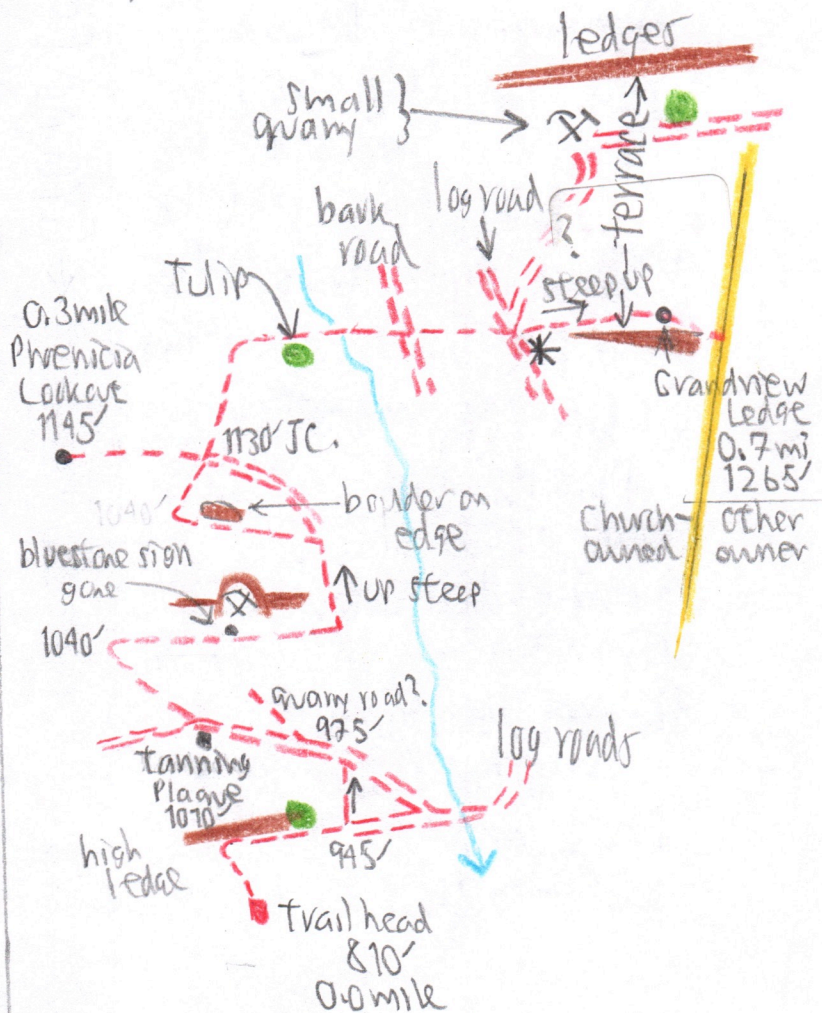 ledges
small
quarry
log road
bark
road
terrace
?
Tulip
steep up
0.3 mile
Phoenicia
Lookout
1145′
Grandview
Ledge
0.7 mi
1265′
1130′ JC.
1040′
boulder on
edge
church
owned
other
owner
bluestone sign
gone
up steep
1040′
quarry road?
975′
log roads
tanning
Plaque
1010′
945′
high
ledge
trail head
810′
0.0 mile